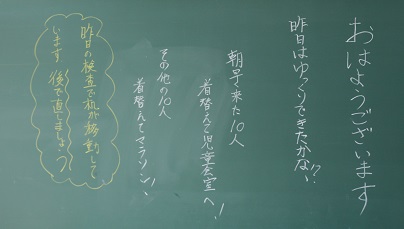 おはようございます
昨日はゆっくりできたかな!?
朝早来た10人
着替えて児童会室へ!
その他の10人
着替えてマラソン!
昨日の検査で机が移動して
います 後で直しましょう